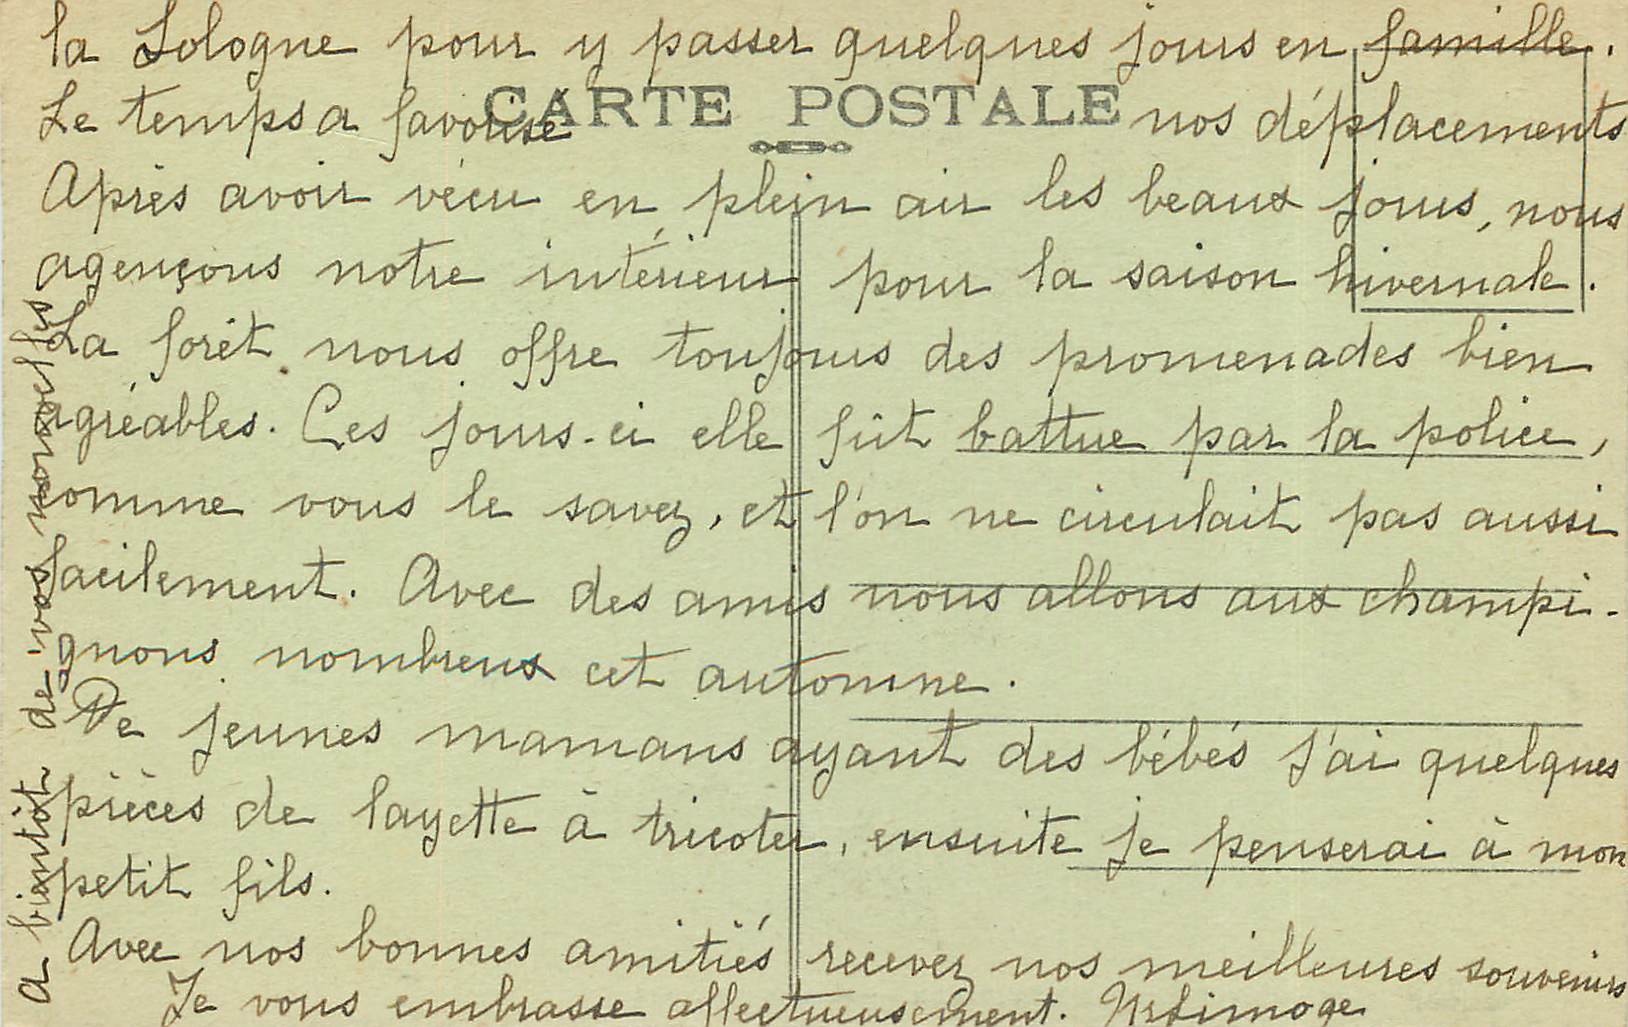 la Sologne pour y passer quelques jours en famille.
CARTE POSTALE
Le temps a favorisé nos déplacements
Après avoir vécu en plein air les beaux jours, nous
agençons notre intérieur pour la saison hivernale.
La forêt nous offre toujours des promenades bien
agréables. Ces jours-ci elle fût battue par la police,
comme vous le savez, et l'on ne circulait pas aussi
facilement. Avec des amis nous allons aux champi-
gnons nombreux cet automne.
De jeunes mamans ayant des bébés j'ai quelques
pièces de layette à tricoter, ensuite je penserai à mon
petit fils.
Avec nos bonnes amitiés recevez nos meilleures souvenirs
Je vous embrasse affectueusement.
a bientôt de vos nouvelles